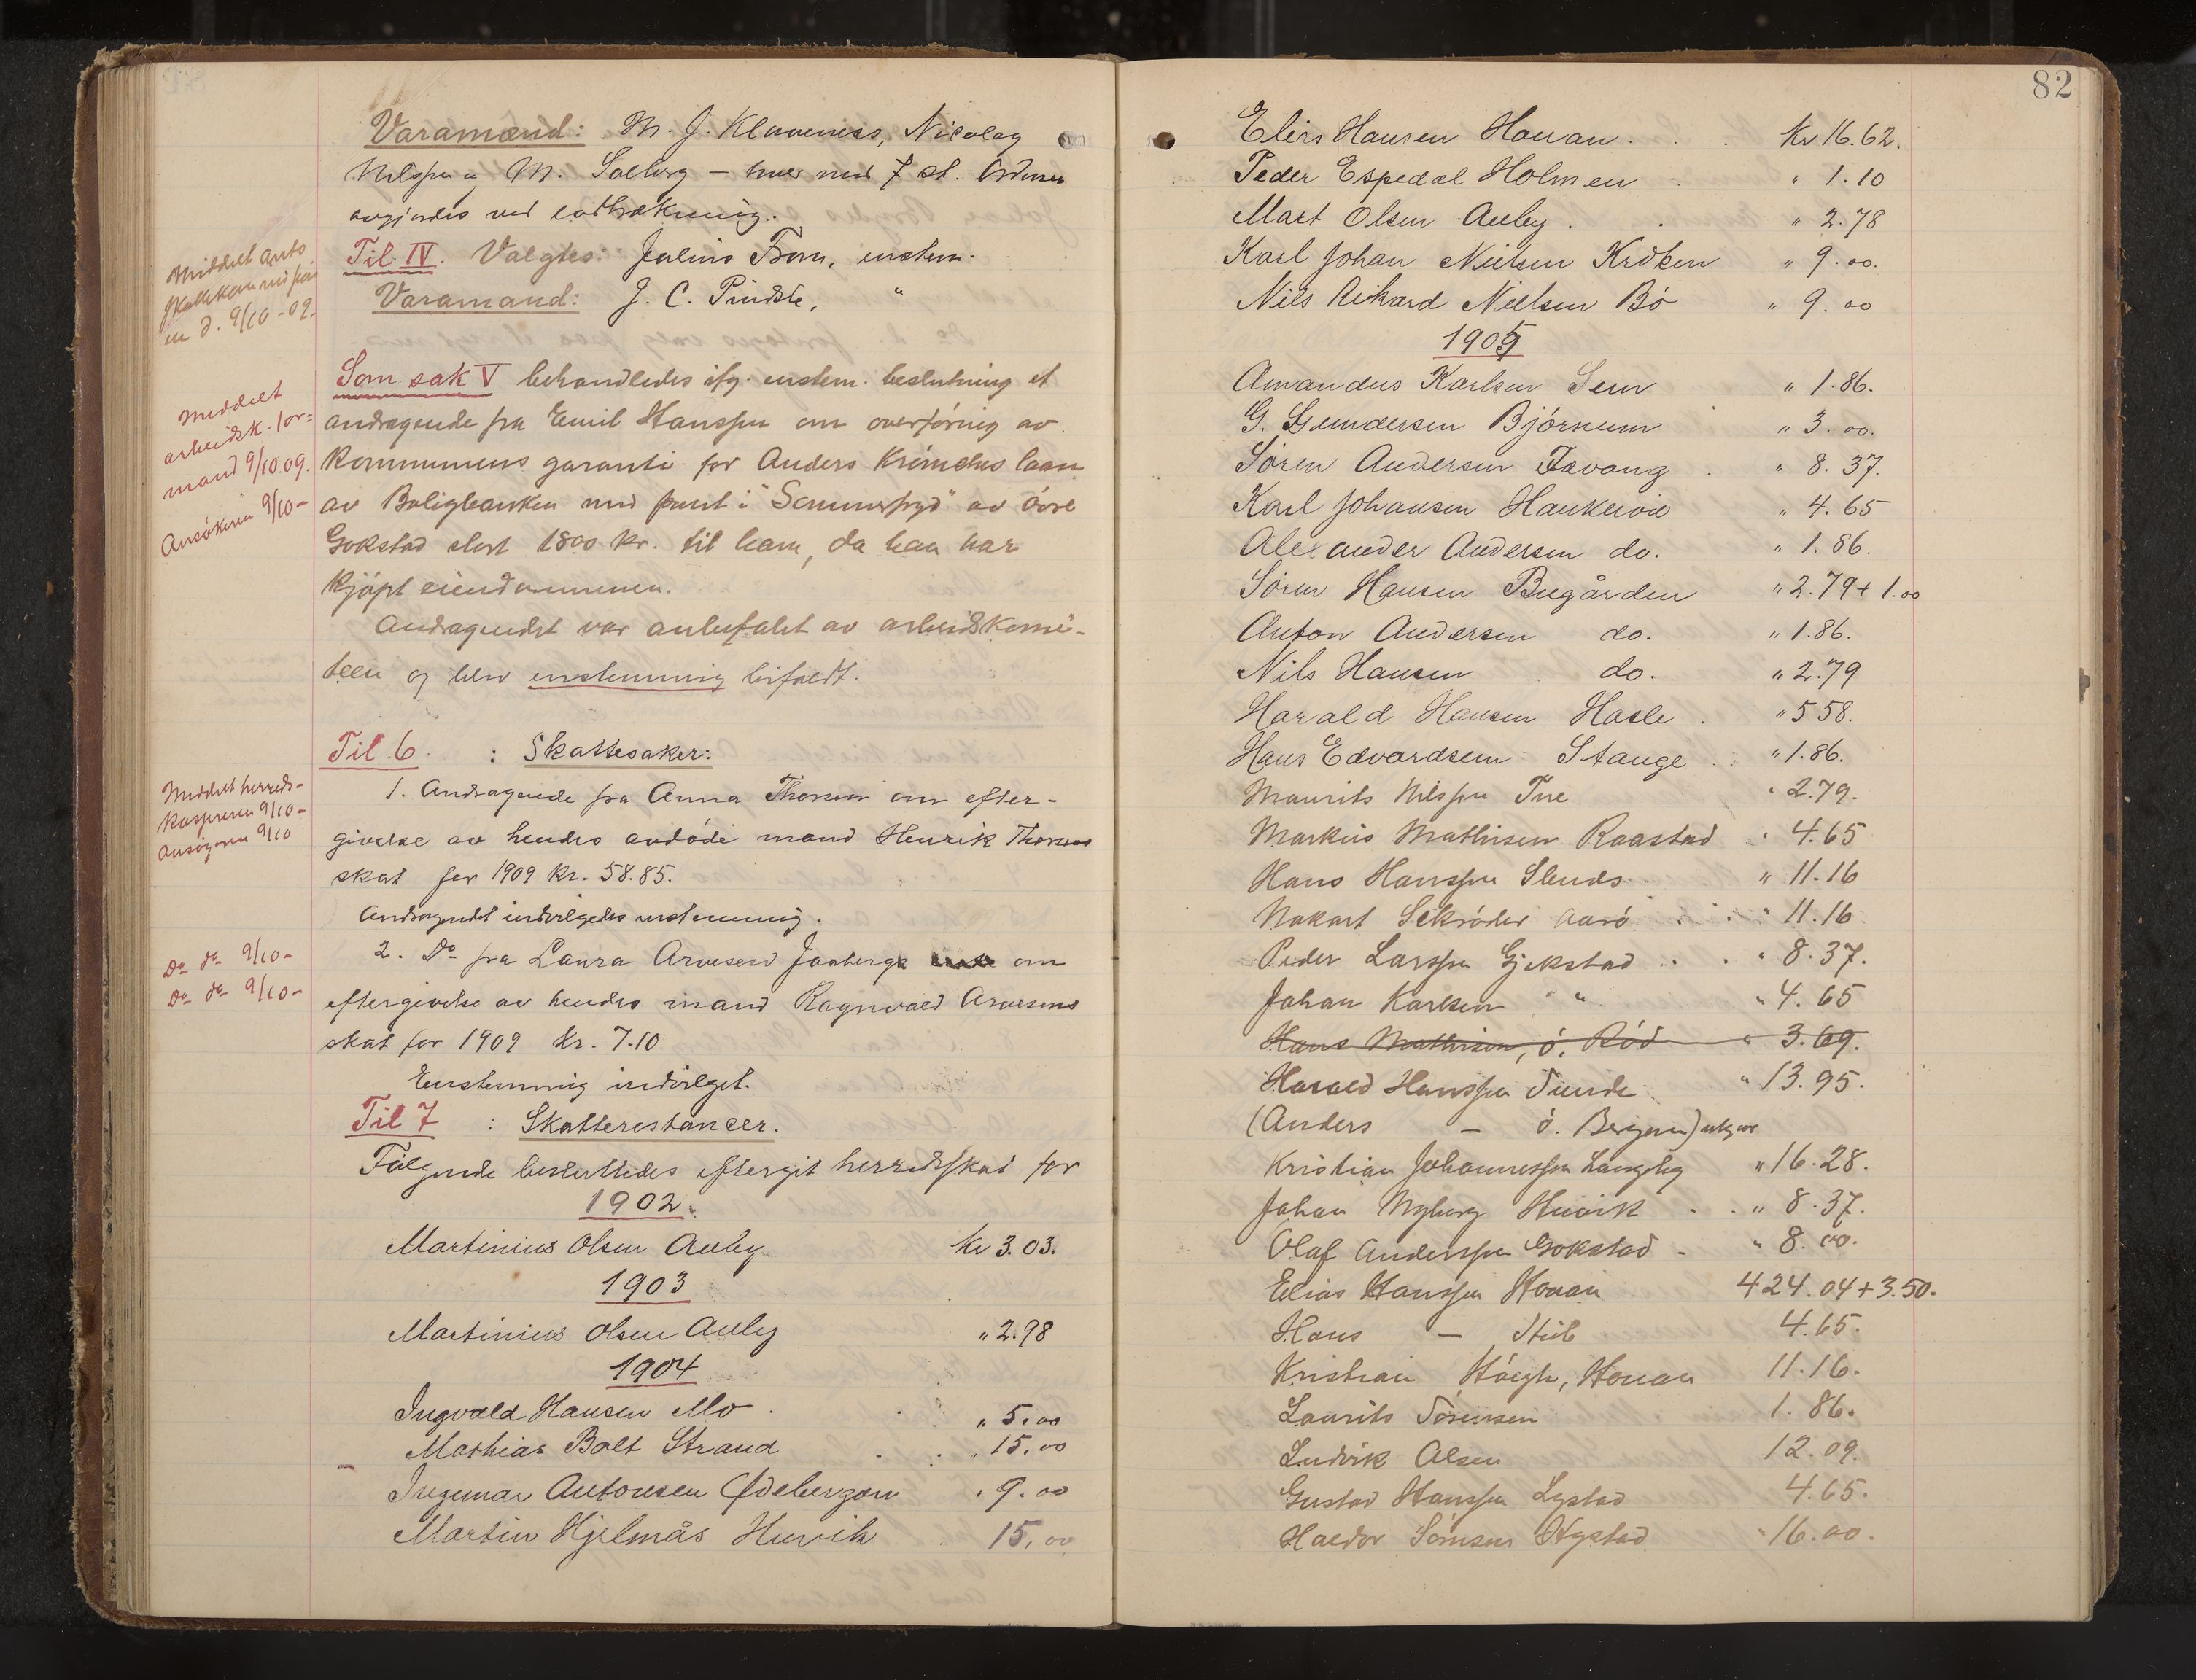 82
Varamænd: M. J. Klaveness, Nicolay
Nilssen og M. Solberg – hver med 7 st. Ordenen
avgjordes ved lodtrækning.
Til IV. Valgtes: Julius Fom, enstem.
Varamand: J. C. Pindsle, "
Middelt
m d. 9/10-09.
Som sak V behandledes ifg. enstem. beslutning et
andragende fra Emil Hanssen om overføring av
kommunens garanti for Anders laan
av Boligbanken med pant i "Sommerfryd" av øvre
Gokstad stort 1800 kr. til ham, da han har
kjøpt eiendommen.
Andragendet var anbefalet av arbeidskomi-
teen og blev enstemmig bifaldt.
Middelt
arbeidsk. for-
mand 9/10.09.
Ansøkeren 9/10-
Til 6. : Skattesaker:
1. Andragende fra Anna Thorsen om efter-
givelse av hendes avdøde mand Henrik Thorsens
skat for 1909 kr. 58.85.
Andragendet indvilgedes enstemmig.
2. Do fra Laura Arvesen Jaaberg om
eftergivelse av hendes mand Ragnvald Arvesens
skat for 1909 kr. 7.10
Enstemmig indvilget.
Middelt herreds-
kasseren 9/10-
Ansøgeren 9/10
Do do 9/10-
Do do 9/10-
Til 7 : Skatterestancer.
Følgende besluttedes eftergit herredsskat for
1902.
Martinius Olsen Auby Kr 3.03.
1903
Martinius Olsen Auby " 2.98
1904
Ingvald Hansen Mo . " 5.00
Mathias Bolt Strand . . " 15.00
Ingemar Antonsen Ødebergan " 9.00
Martin Hjelmås Huvik . 15.00
Elias Hansen Hauan . . . Kr 16.62.
Peder Espedal Holmen . " 1.10
Mart Olsen Auby . . " 2.78
Karl Johan Nielsen Kroken " 9.00.
Nils Rikard Nielsen Bø " 9.00
1905
Amandus Karlsen Sem " 1.86.
G. Gundersen Bjørnum " 3.00.
Søren Andersen Fevang . " 8.37.
Karl Johansen Haukerøie " 4.65
Alexander Andersen do. " 1.86.
Søren Hansen Bugården " 2.79 + 1.00
Anton Andersen do. " 1.86.
Nils Hansen do. " 2.79
Harald Hansen Hasle . " 5 58.
Hans Edvardsen Stange . " 1.86.
Maurits Nilssen " 2.79.
Markus Mathisen Raastad " 4.65
Hans Hanssen " 11.16
Schrøder Aarø . . " 11.16
Peder Larssen Gjekstad . . " 8.37.
Johan Karlsen " " 4.65
Hans Mathisen, ø. Rød " 3.69.
Harald Hanssen Tunde " 13.95.
(Anders – ø. Bergan) utgaar
Kristian Johannessen Langeby " 16.28.
Johan Nyberg Huvik . . " 8.37.
Olaf Anderssen Gokstad - " 8.00.
Elias Hanssen Houan 424.04 + 3.50.
Hans – Stub 4.65.
Kristian Høegh, Houan 11.16.
Laurits Sørensen 1.86.
Ludvik Olsen 12.09.
Gustav Hanssen Lystad 4.65.
Haldor Nystad " 16.00.